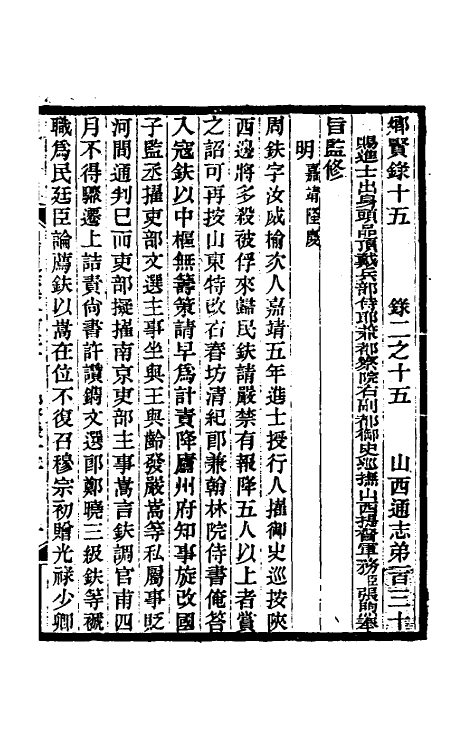 鄉賢錄十五　錄二之十五　山西通志弟一百三十
賜進士出身頭品頂戴兵部侍郎兼都察院右副都御史巡撫山西提督軍務臣張煦奉
旨監修
明嘉靖隆慶
周鈇字汝威榆次人嘉靖五年進士授行人擢御史巡按陝
西邊將多殺被俘來歸民鈇請嚴禁有報降五人以上者賞
之詔可再按山東特改右春坊清紀郎兼翰林院侍書俺荅
入寇鈇以中樞無籌策請早爲計責降廬州府知事旋改國
子監丞擢吏部文選主事坐與王與齡發嚴嵩等私屬事貶
河間通判巳而吏部擬擢南京吏部主事嵩言鈇調官甫四
月不得驟遷上詰責尚書許讚鐫文選郎鄭曉三級鈇等褫
職爲民廷臣論薦鈇以嵩在位不復召穆宗初贈光祿少卿